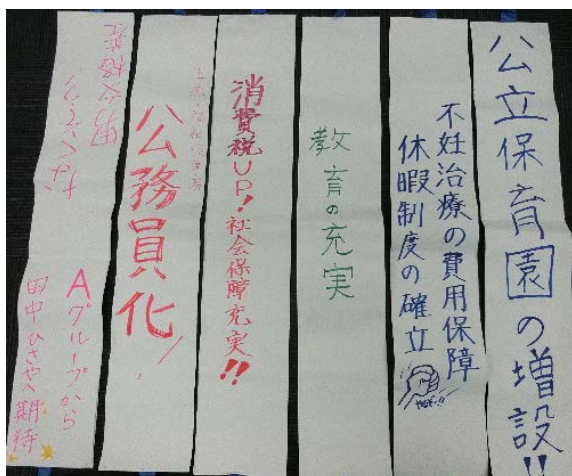 公立保育園の増設!!
不妊治療の費用保障
休暇制度の確立
教育の充実
消費税UP!社会保障充実!!
公務員化!
男
なくそう
Aグループから
田中ひさやへ期待